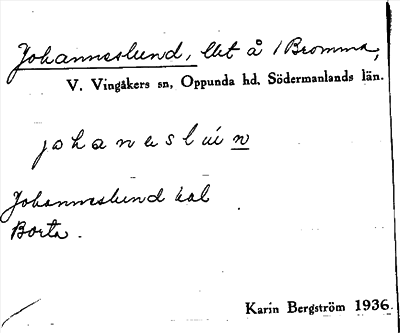 Johanneslund, lht å /Bromma,
V. Vingåkers sn, Oppunda hd, Södermanlands län.
johaneslun
Johanneslund kal
Borta.
Karin Bergström 1936.